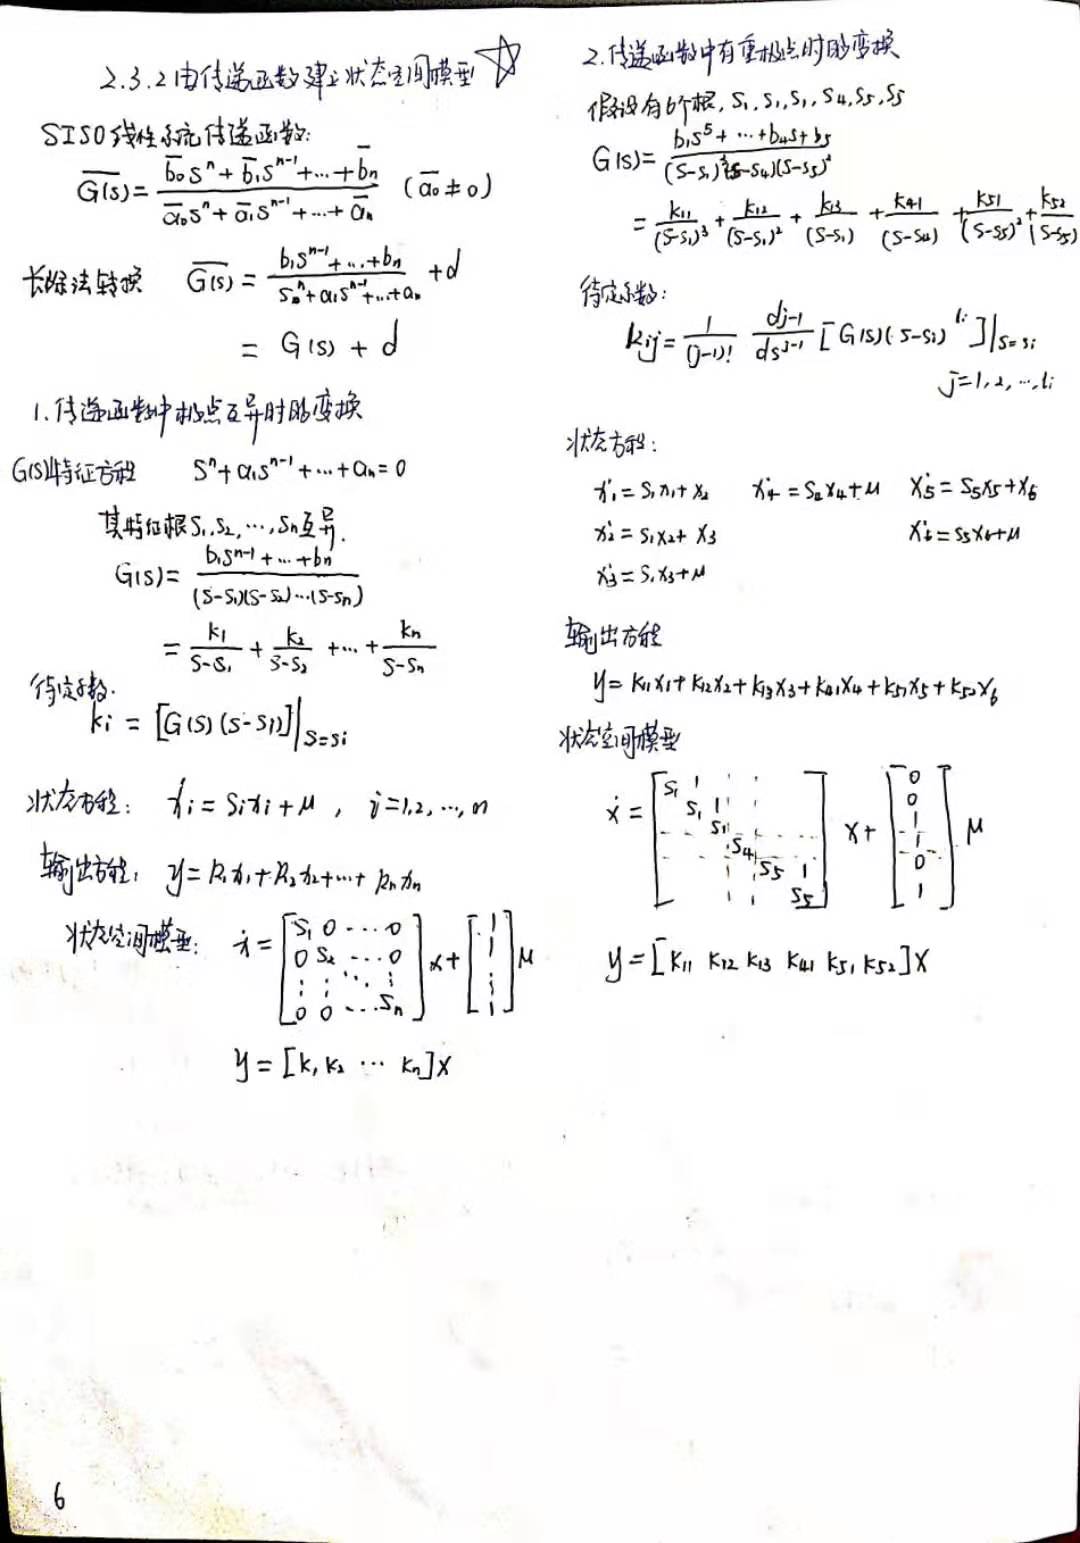 2.3.2由传递函数建立状态空间模型 ☆
SISO线性系统传递函数:
G̅(s) = (b̅₀sⁿ + b̅₁sⁿ⁻¹ + … + b̅ₙ) / (a̅₀sⁿ + a̅₁sⁿ⁻¹ + … + a̅ₙ) (a̅₀ ≠ 0)
长除法转换 G̅(s) = (b₁sⁿ⁻¹ + … + bₙ) / (sⁿ + a₁sⁿ⁻¹ + … + aₙ) + d
= G(s) + d
1.传递函数中极点互异时的变换
G(s)特征方程 sⁿ + a₁sⁿ⁻¹ + … + aₙ = 0
其特征根s₁,s₂, …, sₙ互异.
G(s) = (b₁sⁿ⁻¹ + … + bₙ) / ((s-s₁)(s-s₂)…(s-sₙ))
= k₁/(s-s₁) + k₂/(s-s₂) + … + kₙ/(s-sₙ)
待定系数.
kᵢ = [G(s)(s-sᵢ)]|s=sᵢ
状态方程: ẋᵢ = sᵢxᵢ + μ , i=1,2, …, n
输出方程: y = k₁x₁ + k₂x₂ + … + kₙxₙ
状态空间模型: ẋ = [s₁ 0 … 0
0 s₂ … 0
⋮ ⋮ ⋱ ⋮
0 0 … sₙ] x + [1 1 ⋮ 1] μ
y = [k₁ k₂ … kₙ]x
2.传递函数中有重极点时的变换
假设有6个根, s₁, s₁, s₁, s₄, s₅, s₅
G(s) = (b₁s⁵ + … + b₄s + b₅) / ((s-s₁)³(s-s₄)(s-s₅)²)
= k₁₁/(s-s₁)³ + k₁₂/(s-s₁)² + k₁₃/(s-s₁) + k₄₁/(s-s₄) + k₅₁/(s-s₅)² + k₅₂/(s-s₅)
待定系数:
kᵢⱼ = 1/(j-1)! dj-1/dsʲ⁻¹ [G(s)(s-sᵢ)^lᵢ]|s=sᵢ
j=1,2, …, lᵢ
状态方程:
ẋ₁ = s₁x₁ + x₂ ẋ₄ = s₄x₄ + μ ẋ₅ = s₅x₅ + x₆
ẋ₂ = s₁x₂ + x₃ ẋ₆ = s₅x₆ + μ
ẋ₃ = s₁x₃ + μ
输出方程
y = k₁₁x₁ + k₁₂x₂ + k₁₃x₃ + k₄₁x₄ + k₅₁x₅ + k₅₂x₆
状态空间模型
ẋ = [s₁ 1
s₁ 1
s₁
s₄
s₅ 1
s₅] x + [0 0 1 1 0 1] μ
y = [k₁₁ k₁₂ k₁₃ k₄₁ k₅₁ k₅₂]x
6